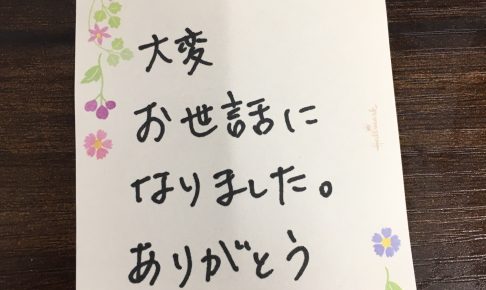 大変
お世話に
なりました。
ありがとう
Hallmark